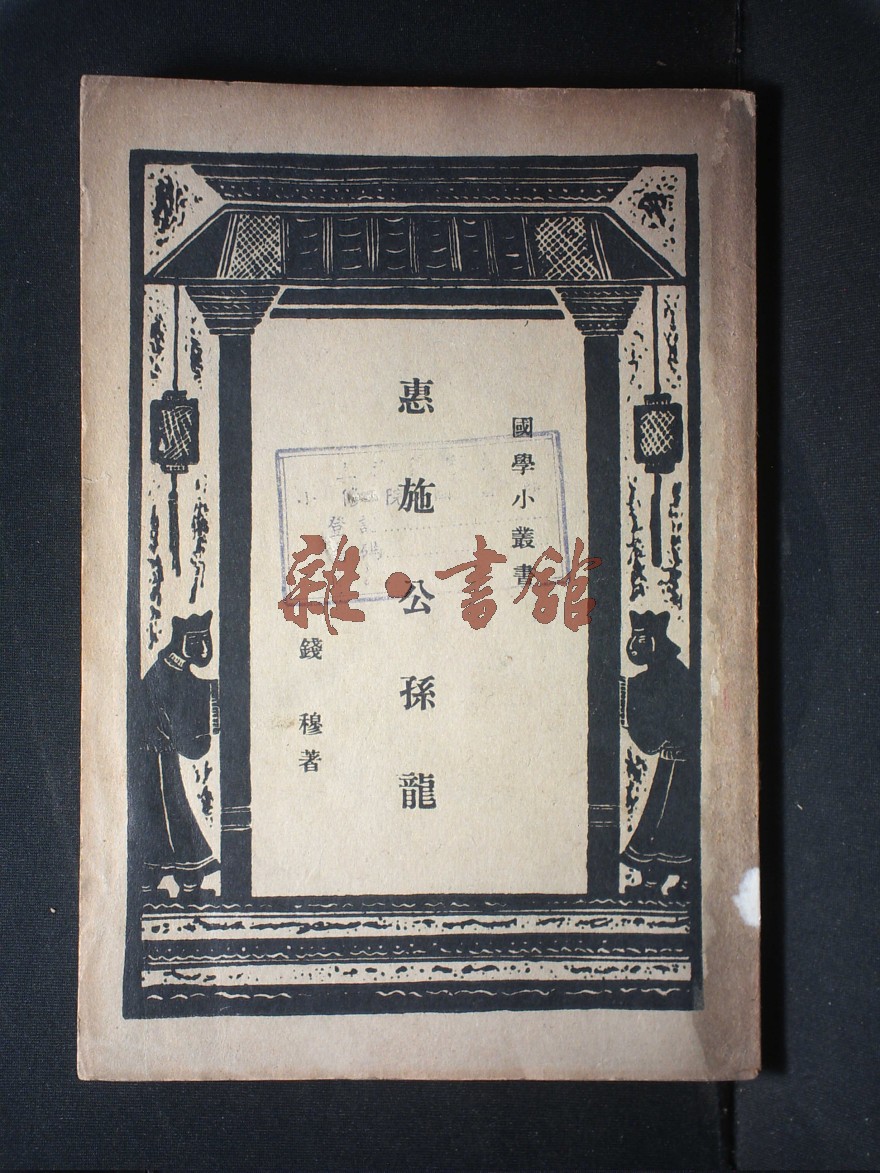 國學小叢書
惠施公孫龍
錢穆著
雜·書館
登記